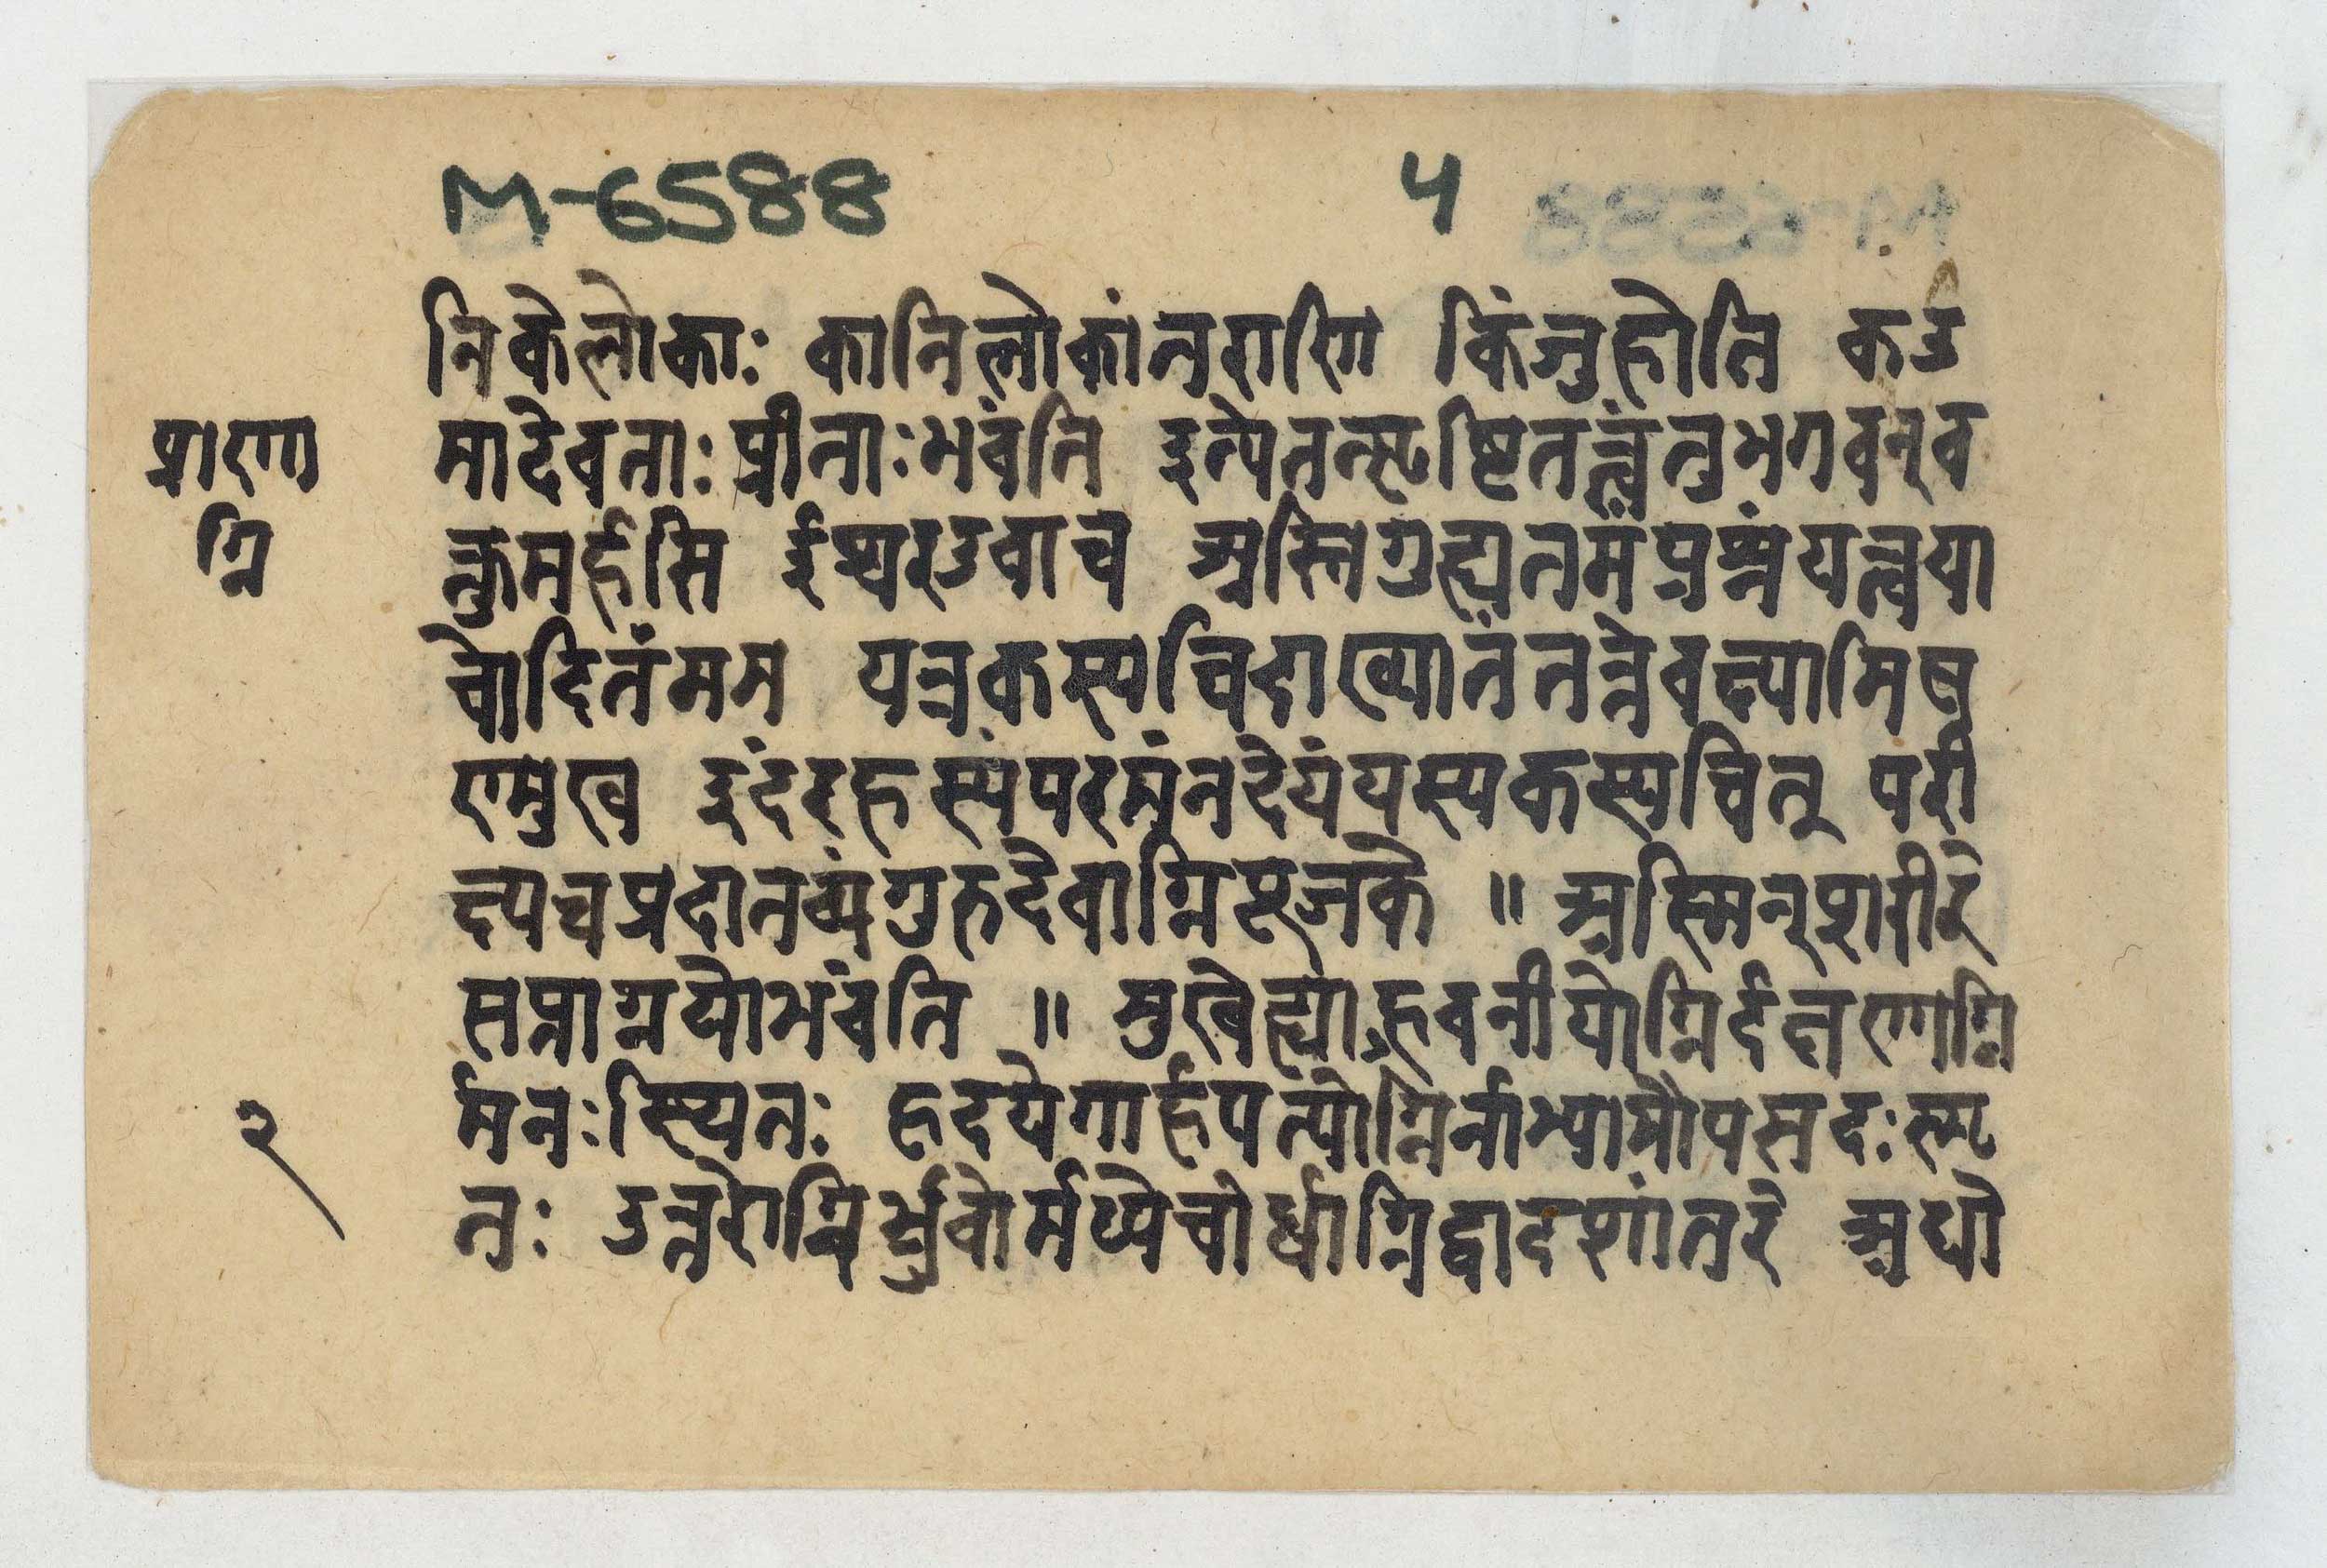 M-6588 ५
निकेलोकाः कानिलोकांतराणि किंजुहोति कउ
प्राणा
मादेवताःप्रीताःभवंति इत्येतत्सृष्टितत्त्वंतुभगवन्व
ग्नि
क्तुमर्हसि ईश्वरउवाच अस्तिगुह्यतमंप्रश्नंयत्त्वया
चोदितंमम यन्नकस्यचिदाख्यातंतत्तेवक्ष्यामिष
ण्मुख इदंरहस्यंपरमंनदेयंयस्यकस्यचित् परी
क्ष्यचप्रदातव्यंगुरुदेवाग्निपूजके ॥ अस्मिन्शरीरे
सप्ताग्नयोभवंति ॥ मुखेह्याहवनीयोग्निर्दक्षणाग्नि
२
र्मनःस्थितः हृदयेगार्हपत्योग्निर्नाभ्यामौपसदःस्मृ
तः उत्तरोग्निर्भ्रुवोर्मध्येचोर्ध्वाग्निद्वादशांतरे अधो